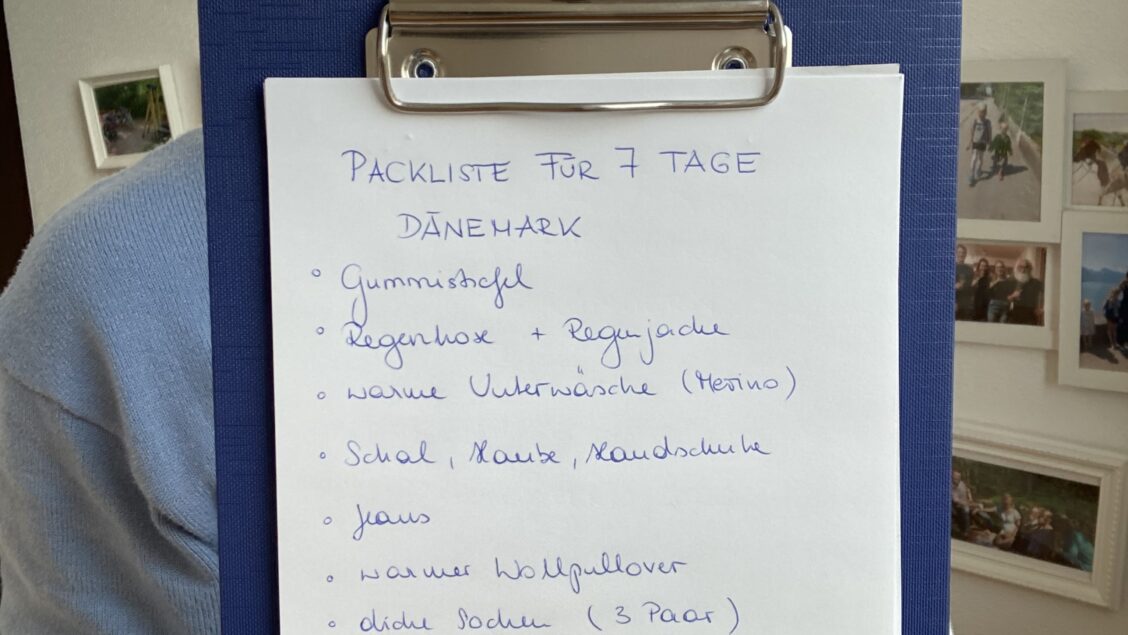 PACKLISTE FÜR 7 TAGE
DÄNEMARK
° Gummistiefel
° Regenhose + Regenjacke
° warme Unterwäsche (Merino)
° Schal, Haube, Handschuhe
° Jeans
° warmer Wollpullover
° dicke Socken (3 Paar)